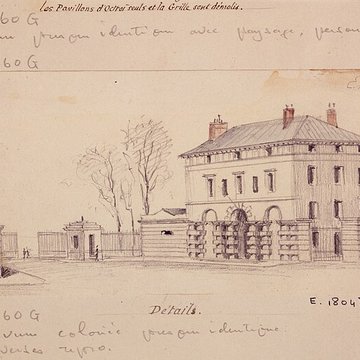 Les Pavillons d'Octroi seuls et la Grille sont démolis.
60 G
presque identique avec paysage, person
60 G
Détails.
E. 1804
60 G
coloriée presque identique
repro.